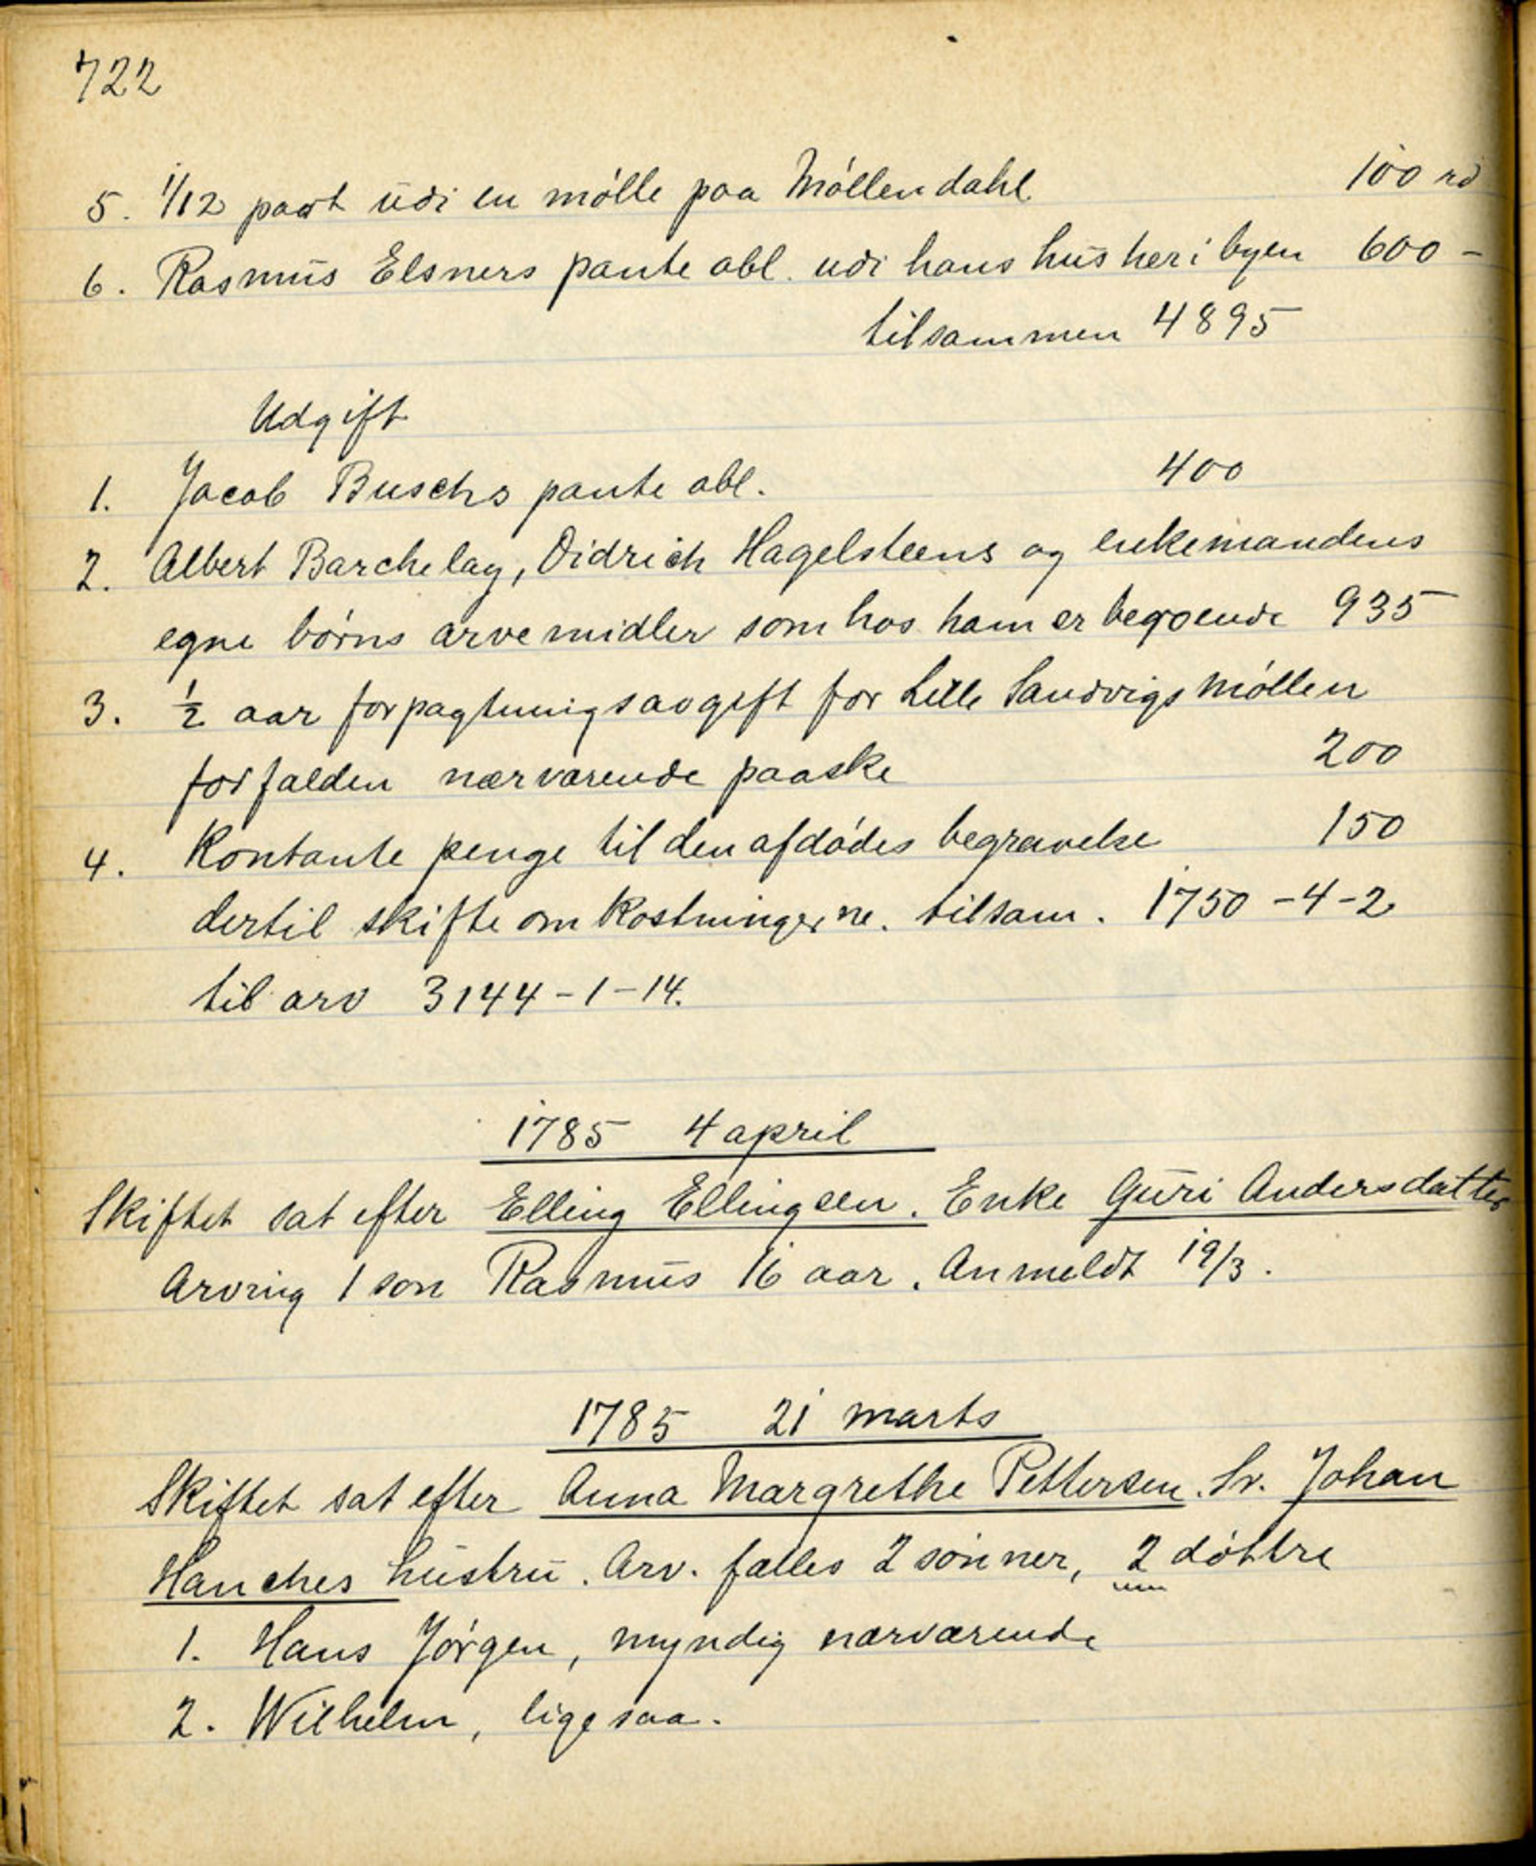 722
5. 1/12 part udi en mølle paa Møllendahl 100 rd
6. Rasmus Elsners pante obl. udi hans hus her i byen 600 -
tilsammen 4895
Udgift
1. Jacob Buschs pante obl. 400
2. Albert Barchelay, Didrich Hagelsteens og enkemandens
egne børns arvemidler som hos ham er beroende 935
3. 1/2 aar forpagtningsavgift for Lille Sandvigs Møllen
forfalden nærværende paaske 200
4. Kontante penge til den afdødes begravelse 150
dertil skifteomkostningerne. tilsam. 1750 - 4 - 2
til arv 3144 - 1 - 14.
1785 4 april
Skiftet sat efter Elling Ellingsen. Enke Guri Andersdatter
Arving 1 son Rasmus 16 aar. Anmeldt 19/3.
1785 21 marts
Skiftet sat efter Anna Margrethe Pettersen. Sr. Johan
Hanches hustru. Arv. fælles 2 sønner, 2 døttre
1. Hans Jørgen, myndig nærværende
2. Wilhelm, ligesaa.